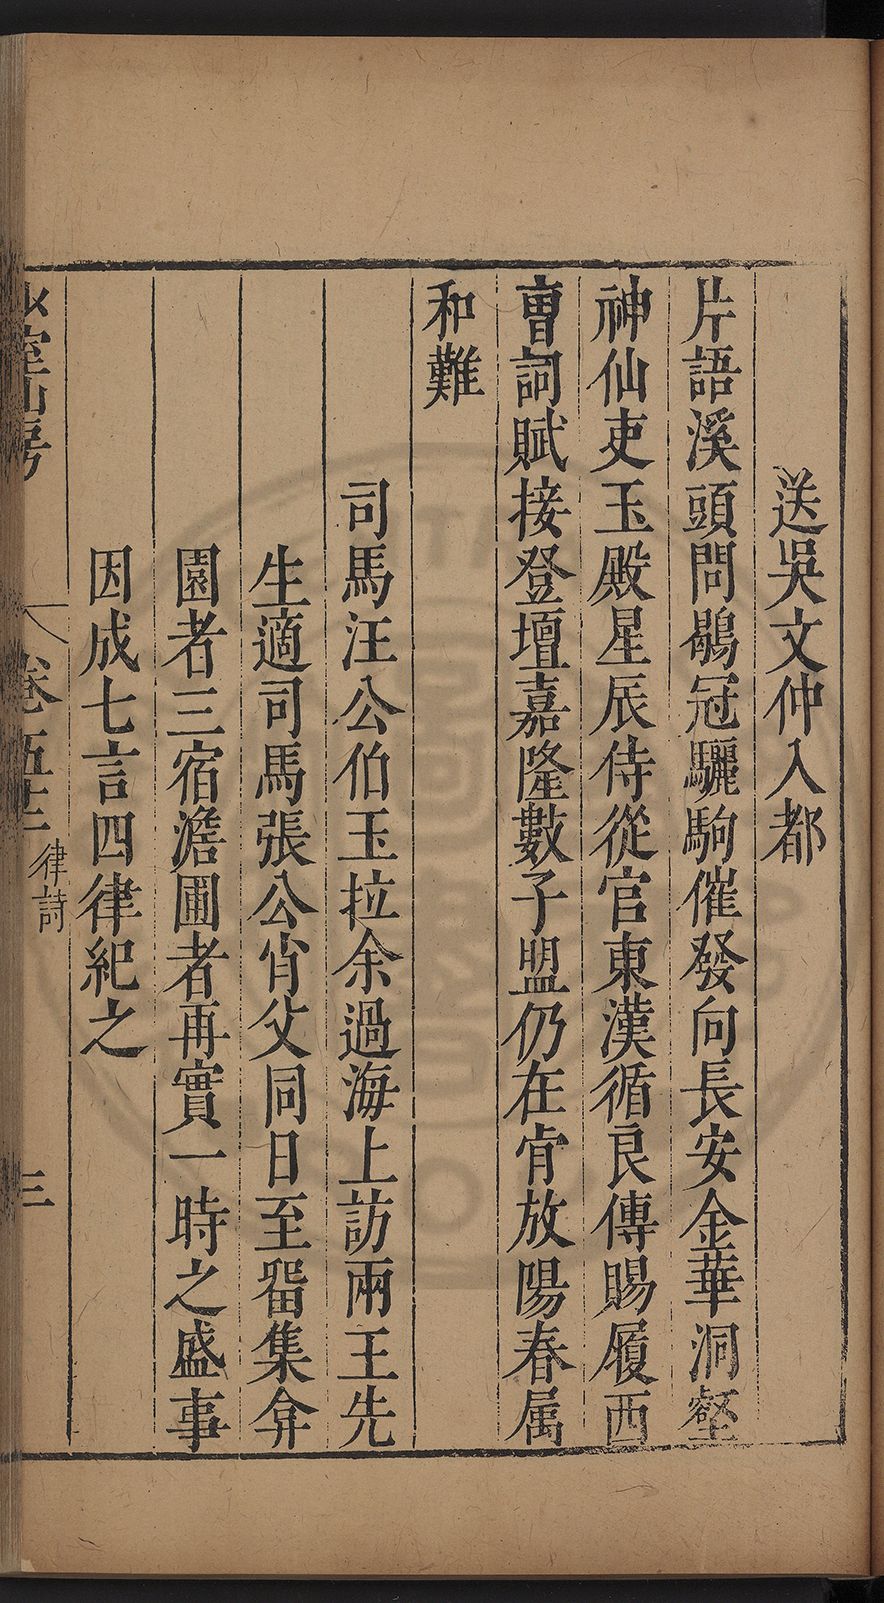 送吳文仲入都
片語溪頭問鶡冠驪駒催發向長安金華洞壑
神仙吏玉殿星辰侍從官東漢循良傳賜履西
曹詞賦接登壇嘉隆數子盟仍在肯放陽春属
和難
司馬汪公伯玉拉余過海上訪兩王先
生適司馬張公肖父同日至畱集弇
園者三宿澹圃者再實一時之盛事
因成七言四律紀之
室山房
卷五十三
律詩
三